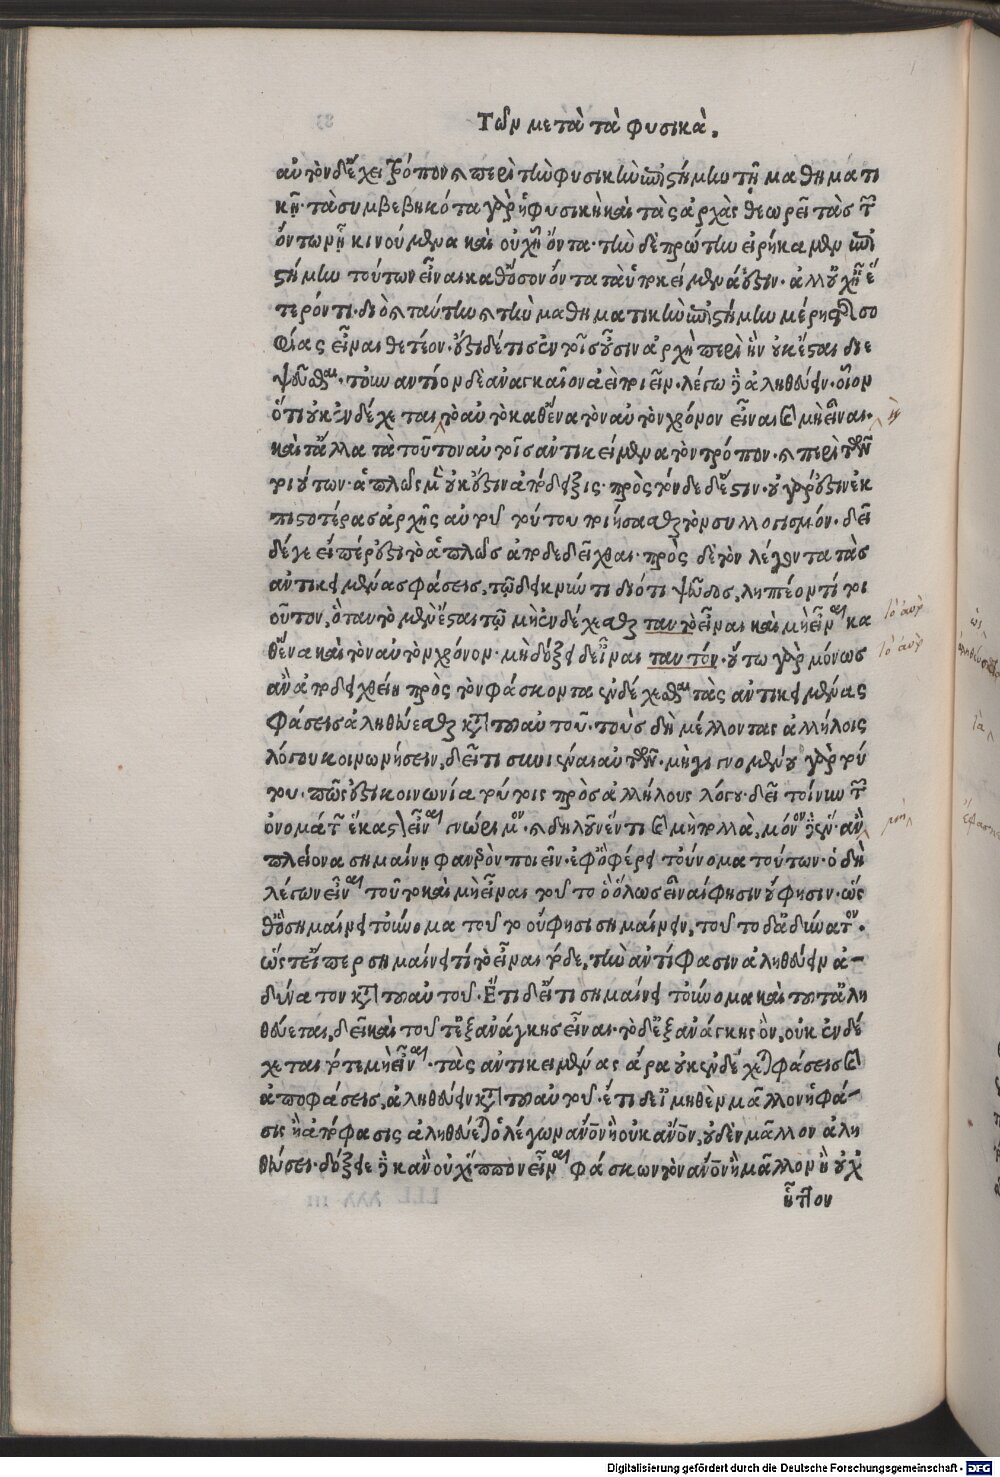 Τῶν μετὰ τὰ φυσικὰ.
αὐτὸν δ' ἔχει τρόπον καὶ περὶ τὴν φυσικὴν ἐπιστήμην τῇ μαθηματι
κῇ· τὰ συμβεβηκότα γὰρ ἡ φυσικὴ καὶ τὰς ἀρχὰς θεωρεῖ τὰς τῶν
ὄντων ᾗ κινούμενα καὶ οὐχ ᾗ ὄντα· τὴν δὲ πρώτην εἰρήκαμεν ἐπι
στήμην τούτων εἶναι καθ' ὅσον ὄντα τὰ ὑποκείμενά ἐστιν· ἀλλ' οὐχ ᾗ ἕ
τερόν τι· διὸ καὶ ταύτην καὶ τὴν μαθηματικὴν ἐπιστήμην μέρη φιλοσο
φίας εἶναι θετέον· ἔστι δέ τις ἐν τοῖς οὖσιν ἀρχὴ περὶ ἣν οὐκ ἔσται διε
ψεῦσθαι· τοὐναντίον δὲ ἀναγκαῖον ἀεὶ ποιεῖν· λέγω δὲ ἀληθεύειν· οἷον
ὅτι οὐκ ἐνδέχεται τὸ αὐτὸ καθ' ἕνα τὸν αὐτὸν χρόνον εἶναι καὶ μὴ εἶναι·
καὶ τἄλλα τὰ τοῦτον αὑτοῖς ἀντικείμενα τὸν τρόπον· καὶ περὶ τῶν
τοιούτων· ἁπλῶς μὲν οὐκ ἔστιν ἀπόδειξις· πρὸς τόνδε δέ ἐστιν· οὐ γὰρ ἔστιν ἐκ
πιστοτέρας ἀρχῆς αὐτοῦ τούτου ποιήσασθαι τὸν συλλογισμόν· δεῖ
δέ γε εἴπερ ἔστι τὸ ἁπλῶς ἀποδεδεῖχθαι· πρὸς δὲ τὸν λέγοντα τὰς
ἀντικειμένας φάσεις, τῷ δεικνύντι διότι ψεῦδος, ληπτέον τί τοι
οῦτον, ὃ ταυτὸ μὲν ἔσται τῷ μὴ ἐνδέχεσθαι ταυτὸ εἶναι καὶ μὴ εἶναι κα
θ' ἕνα καὶ τὸν αὐτὸν χρόνον· μὴ δόξει δ' εἶναι ταυτόν· οὕτω γὰρ μόνως
ἂν ἀποδειχθείη πρὸς τὸν φάσκοντα ἐνδέχεσθαι τὰς ἀντικειμένας
φάσεις ἀληθεύεσθαι κατὰ τοῦ αὐτοῦ· τοὺς δὴ μέλλοντας ἀλλήλοις
λόγου κοινωνήσειν, δεῖ τι συνιέναι αὐτῶν· μὴ γινομένου γὰρ τού
του· πῶς ἔσται κοινωνία τούτοις πρὸς ἀλλήλους λόγου· δεῖ τοίνυν τῶν
ὀνομάτων ἕκαστον εἶναι γνώριμον· καὶ δηλοῦν ἕν τι καὶ μὴ πολλὰ, μόνον δὲ ἕν· ἂν
πλείονα σημαίνῃ φανερὸν ποιεῖν· ἐφ' ὃ φέρει τοὔνομα τούτων· ὁ δὴ
λέγων εἶναι τοῦτο καὶ μὴ εἶναι τοῦτο ὃ ὅλως εἶναί φησιν οὔ φησιν· ὥς
θ' ὃ σημαίνει τοὔνομα τοῦτο οὔ φησι σημαίνειν, τοῦτο δ' ἀδύνατον·
ὥστ' εἴπερ σημαίνει τὶ τὸ εἶναι τόδε, τὴν ἀντίφασιν ἀληθεύειν ἀ-
δύνατον κατὰ τοῦ αὐτοῦ· Ἔτι δ' εἴ τι σημαίνει τοὔνομα καὶ τοῦτ' ἀλη
θεύεται, δεῖ καὶ τοῦτ' ἐξ ἀνάγκης εἶναι· τὸ δ' ἐξ ἀνάγκης ὂν, οὐκ ἐνδέ
χεταί ποτε μὴ εἶναι· τὰς ἀντικειμένας ἄρα οὐκ ἐνδέχεται φάσεις καὶ
ἀποφάσεις, ἀληθεύειν κατὰ τοῦ αὐτοῦ· ἔτι δ' εἰ μηθὲν μᾶλλον ἡ φά-
σις ἢ ἀπόφασις ἀληθεύεται ὁ λέγων ἄνθρωπον ἢ οὐκ ἄνθρωπον, οὐδὲν μᾶλλον ἀλη
θεύσει· δόξειε δὲ κἂν οὐχ ἵππον εἶναι φάσκων τὸν ἄνθρωπον ἢ μᾶλλον ἢ οὐχ
ἧττον